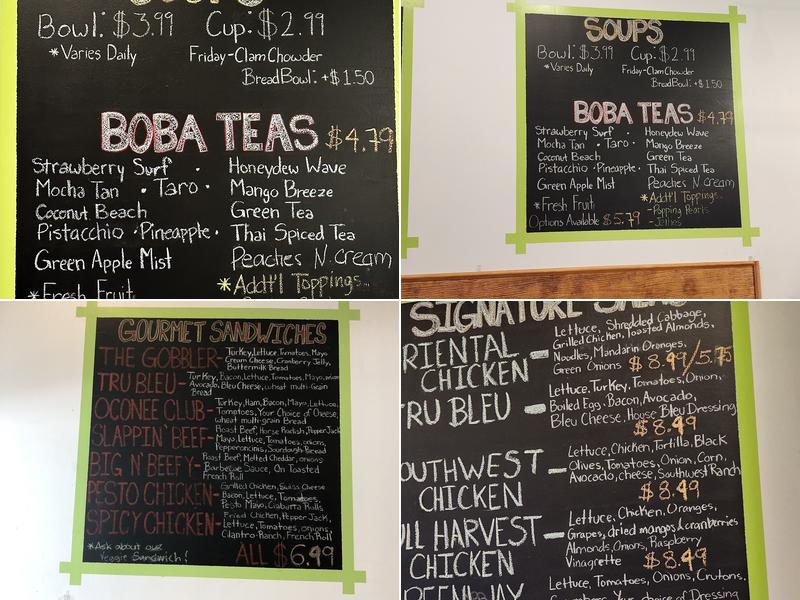 Bowl: $3.99 Cup: $2.99
*Varies Daily Friday-Clam Chowder
BreadBowl: +$1.50
BOBA TEAS $4.79
Strawberry Surf · Honeydew Wave
Mocha Tan · Taro · Mango Breeze
Coconut Beach Green Tea
Pistacchio · Pineapple · Thai Spiced Tea
Green Apple Mist Peaches N. cream
*Fresh Fruit *Addt'l Toppings...
SOUPS
Bowl: $3.99 Cup: $2.99
*Varies Daily Friday-Clam Chowder
BreadBowl: +$1.50
BOBA TEAS $4.79
Strawberry Surf · Honeydew Wave
Mocha Tan · Taro · Mango Breeze
Coconut Beach Green Tea
Pistacchio · Pineapple · Thai Spiced Tea
Green Apple Mist Peaches N. cream
*Fresh Fruit *Addt'l Toppings...
Options Available $5.79 -Popping Pearls
-Jellies
GOURMET SANDWICHES
THE GOBBLER- Turkey, Lettuce, Tomatoes, Mayo
Cream Cheese, Cranberry Jelly,
Buttermilk Bread
TRU BLEU- Turkey, Bacon, Lettuce, Tomatoes, Mayo,
Avocado, Bleu Cheese, wheat multi-Grain
Bread
OCONEE CLUB- Turkey, Ham, Bacon, Mayo, Lettuce,
Tomatoes, Your Choice of Cheese,
wheat multi-grain Bread
SLAPPIN' BEEF- Roast Beef, Horse Radish, Pepper Jack
Mayo, Lettuce, Tomatoes, onions,
Pepperoncinis, Sourdough Bread
BIG N' BEEFY- Roast Beef, Melted Cheddar, onions
Barbeque Sauce, On Toasted
French Roll
PESTO CHICKEN- Grilled Chicken, Swiss Cheese
Bacon, Lettuce, Tomatoes,
Pesto Mayo, Ciabatta Rolls
SPICY CHICKEN- Fried Chicken, Pepper Jack,
Lettuce, Tomatoes, onions,
Cilantro-Ranch, French Roll
*Ask about our
Veggie Sandwich! ALL $6.49
SIGNATURE
RIENTAL CHICKEN- Lettuce, Shredded Cabbage,
Grilled Chicken, Toasted Almonds,
Noodles, Mandarin Oranges,
Green Onions $8.49/5.75
RU BLEU - Lettuce, Turkey, Tomatoes, Onion,
Boiled Egg, Bacon, Avocado,
Bleu Cheese, House Bleu Dressing
$8.49
OUTHWEST CHICKEN - Lettuce, Chicken, Tortilla, Black
Olives, Tomatoes, Onion, Corn,
Avocado, cheese, Southwest Ranch
$8.49
LL HARVEST CHICKEN - Lettuce, Chicken, Oranges,
Grapes, dried mangos & cranberries
Almonds, Onions, Raspberry
Vinagrette $8.49
Lettuce, Tomatoes, Onions, Crutons,